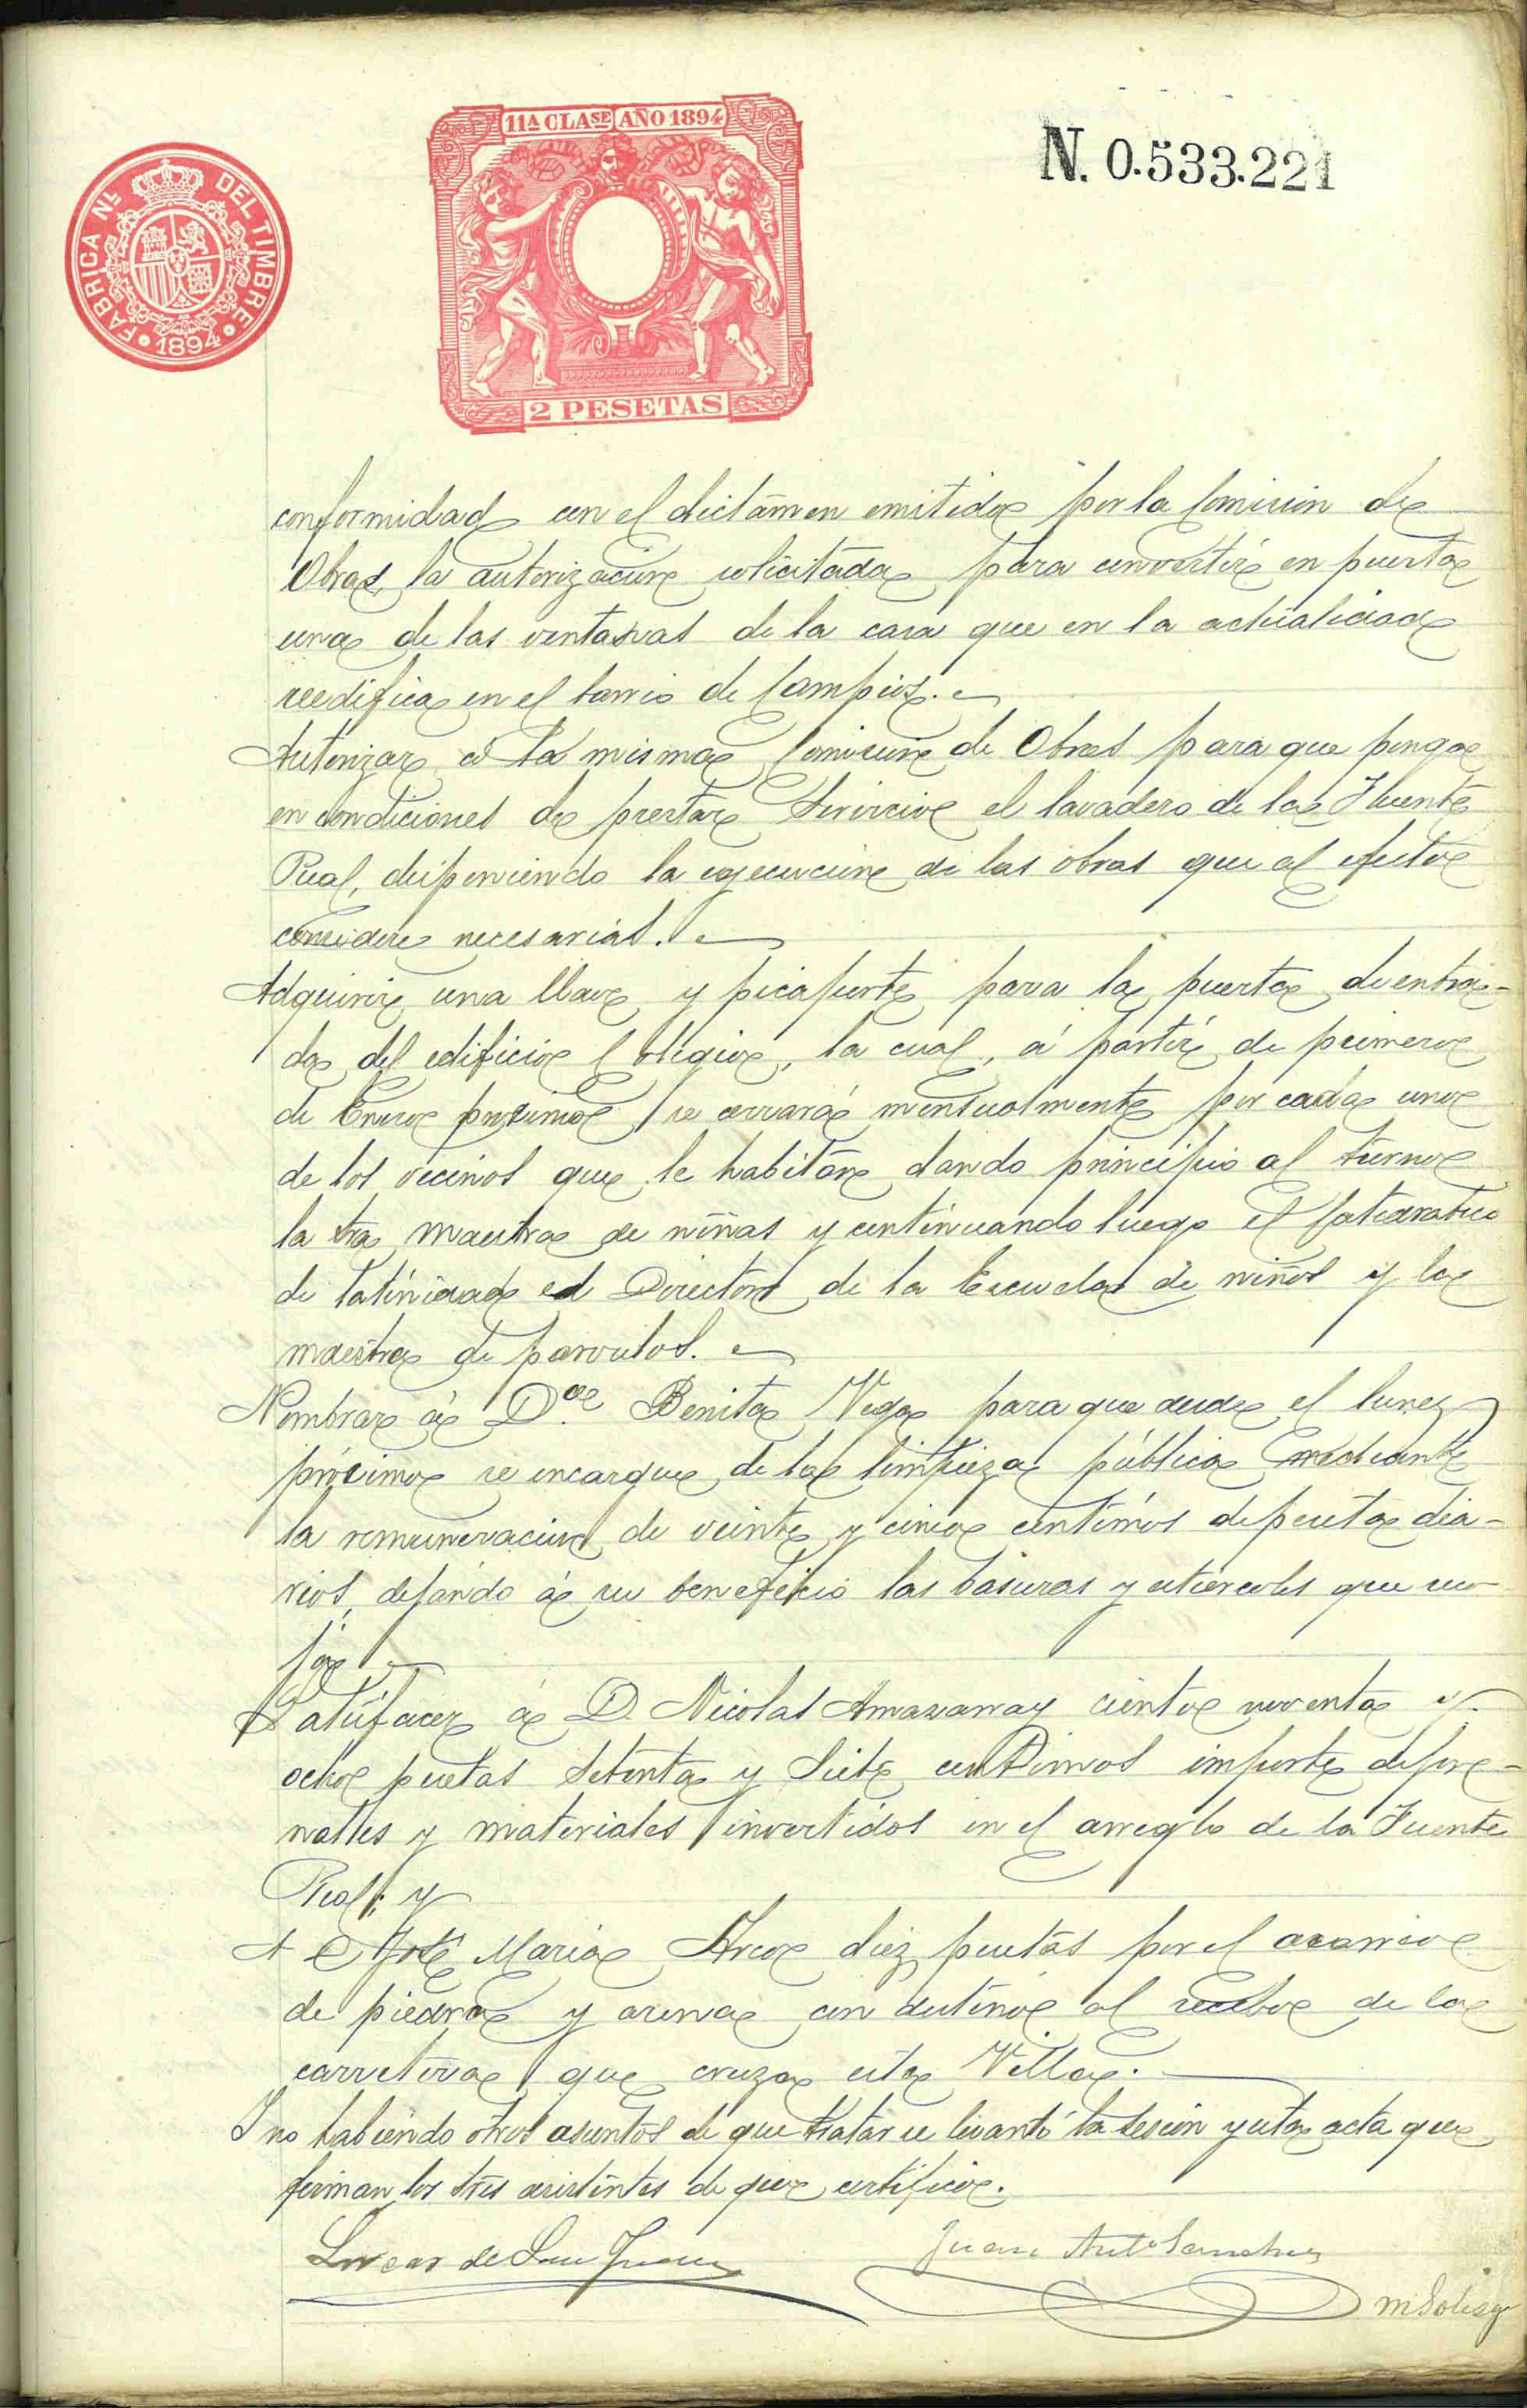 11ª CLASE AÑO 1894
FABRICA Nˡ DEL TIMBRE
1894
2 PESETAS
N. 0.533.221
conformidad con el dictámen emitido por la Comision de
Obras, la autorizacion solicitada para convertir en puerta
una de las ventanas de la casa que en la actualidad
reedifica en el barrio de Campios.
Autorizar á la misma Comision de Obras para que ponga
en condiciones de prestar servicio el lavadero de la Fuente
Real, disponiendo la ejecucion de las obras que al efecto
considere necesarias.
Adquirir una llave y picaporte para la puerta de entra-
da del edificio Colegio, la cual, á partir de primero
de Enero proximo se cerrará mensualmente por cada uno
de los vecinos que le habitan dando principio al turno
la Sra maestra de niñas y continuando luego el Catedratico
de latinidad el Director de la Escuela de niños y la
maestra de parvulos.
Nombrar á Dª Benita Vega para que desde el lunes
próximo se encargue de la limpieza pública mediante
la remuneracion de veinte y cinco centimos de peseta dia-
rios, dejando á su beneficio las basuras y estiercoles que reco-
ja
Satisfacer á D. Nicolas Amasarray ciento noventa y
ocho pesetas setenta y siete centimos importe de jor-
nales y materiales invertidos en el arreglo de la Fuente
Real; y
A José Maria Arco diez pesetas por el acarreo
de piedra y arena con destino al recebo de la
carretera que cruza esta Villa.
Y no habiendo otros asuntos de que tratar se levantó la sesion y esta acta que
firman los tres asistentes de que certifico.
Lucas de San Juan
Juan Antº Sanchez
M Solis